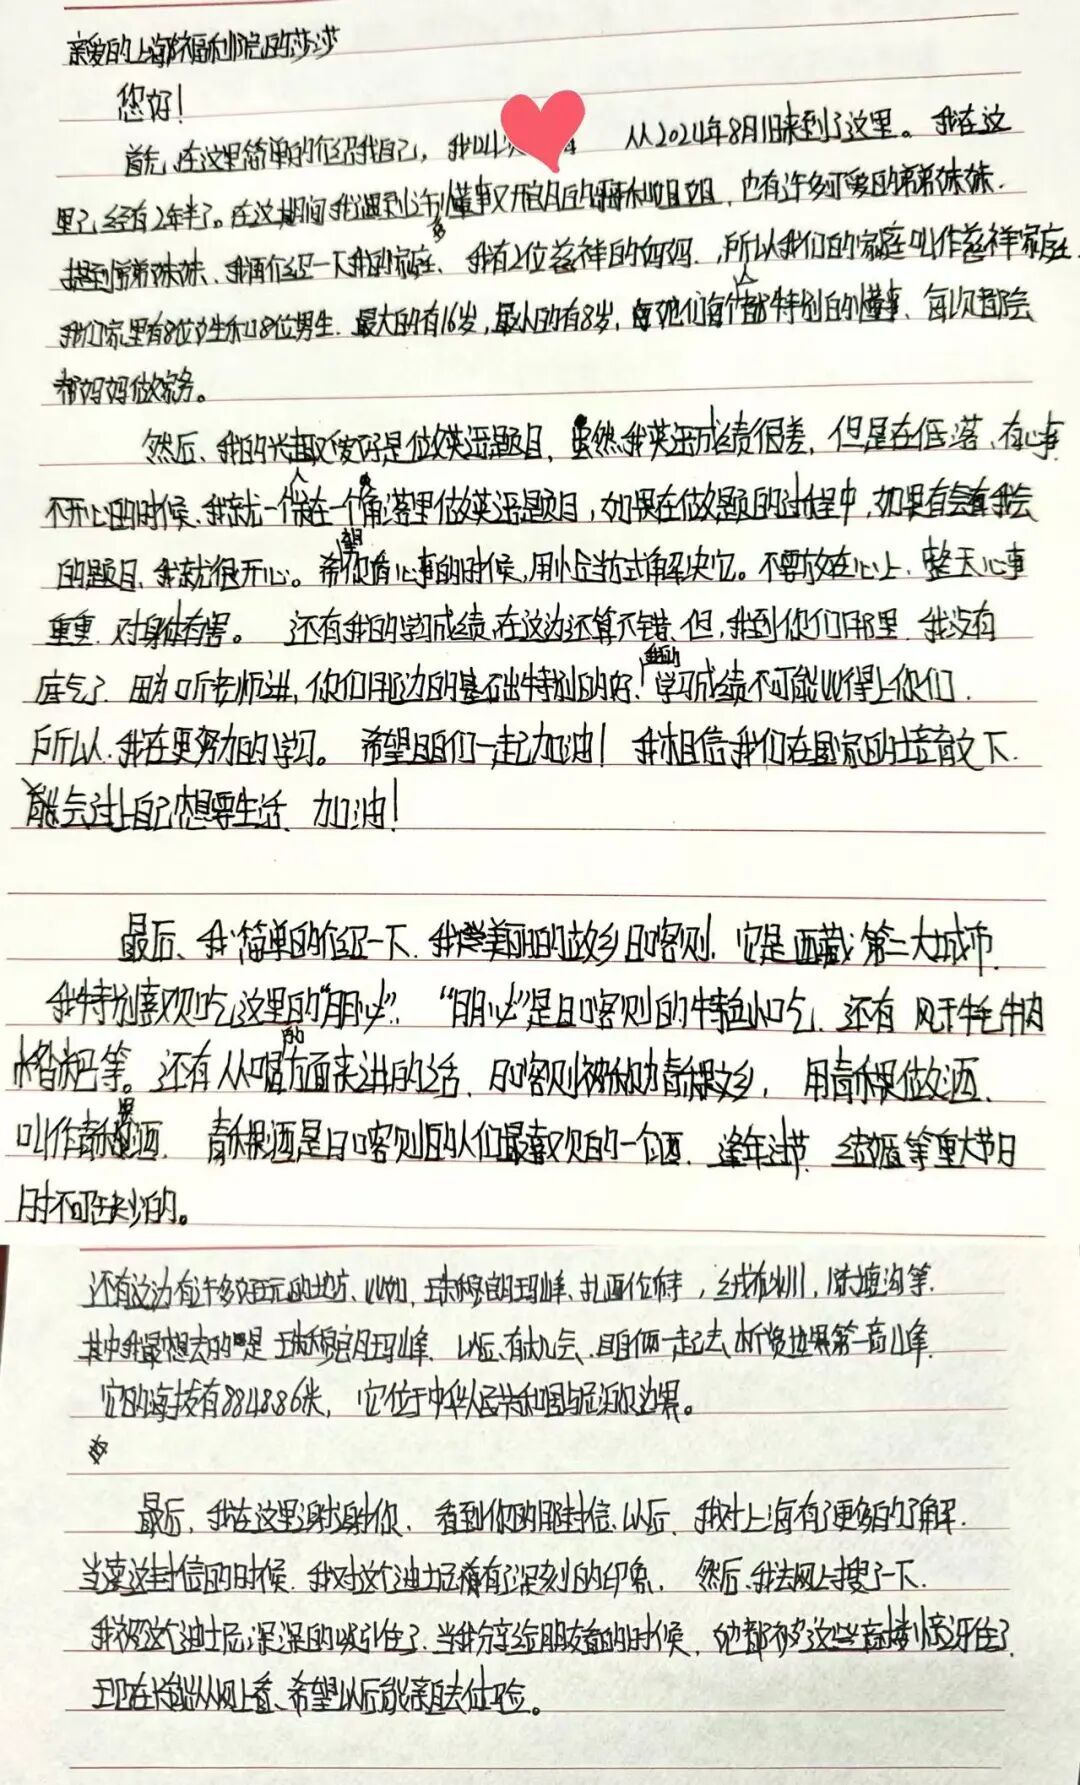 亲爱的上海市福利院的莎莎
您好！
首先，在这里简单的介绍我自己，我叫次 从2024年8月1日来到了这里。我在这
里已经有2年半了。在这期间我遇到许多懂事又开朗的哥哥和姐姐，也有许多可爱的弟弟妹妹.
提到弟弟妹妹、我再介绍一下我的家庭、我有2位慈祥的妈妈.，所以我们的家庭叫作慈祥家庭.
我们家里有8位女生和8位男生.最大的有16岁，最小的有8岁，他们每个人都特别的懂事、每次都会
帮妈妈做家务。
然后、我的兴趣爱好是做英语题目，虽然我英语成绩很差，但是在低落、有心事
不开心的时候、我就一个人在一个角落里做英语题目，如果在做题的过程中，如果有会我会
的题目、我就很开心。希望你有心事的时候，用恰当方式解决它。不要放在心上、整天心事
重重.对身体有害。 还有我的学习成绩，在这边还算不错、但，我到你们那里.我没有
底气了.因为听老师讲，你们那边的基础特别的好、我的学习成绩不可能比得上你们.
所以、我在更努力的学习。希望咱们一起加油！我相信我们在国家的培育之下.
能会过上自己想要生活、加油！
最后、我简单的介绍一下.我美丽的故乡日喀则.它是西藏第二大城市.
我特别喜欢吃这里的“朋必”.“朋必”是日喀则的特色小吃.还有风干牦牛肉
糌粑等。还有从喝的方面来讲的话.日喀则被称为青稞之乡，用青稞做酒.
叫作青稞酒.青稞酒是日喀则的人们最喜欢的一个酒.逢年过节.结婚等重大节日
时不可缺少的。
还有这边有许多好玩的地方、比如，珠穆朗玛峰、扎西伦布寺，绒布冰川，陈塘沟等.
其中我最想去的是珠穆朗玛峰.以后、有机会、咱俩一起去、欣赏世界第一高峰.
它的海拔有8848.86米，它位于中华人民共和国与尼泊尔边界。
最后、我在这里谢谢你.看到你的那封信、以后、我对上海有了更多的了解.
当读这封信的时候.我对这个迪士尼有了深刻的印象.然后、我去网上搜了一下.
我被这个迪士尼深深的吸引住了.当我分享给朋友看的时候，他都被这些高楼惊讶住了.
现在只能从网上看、希望以后能亲自去体验。